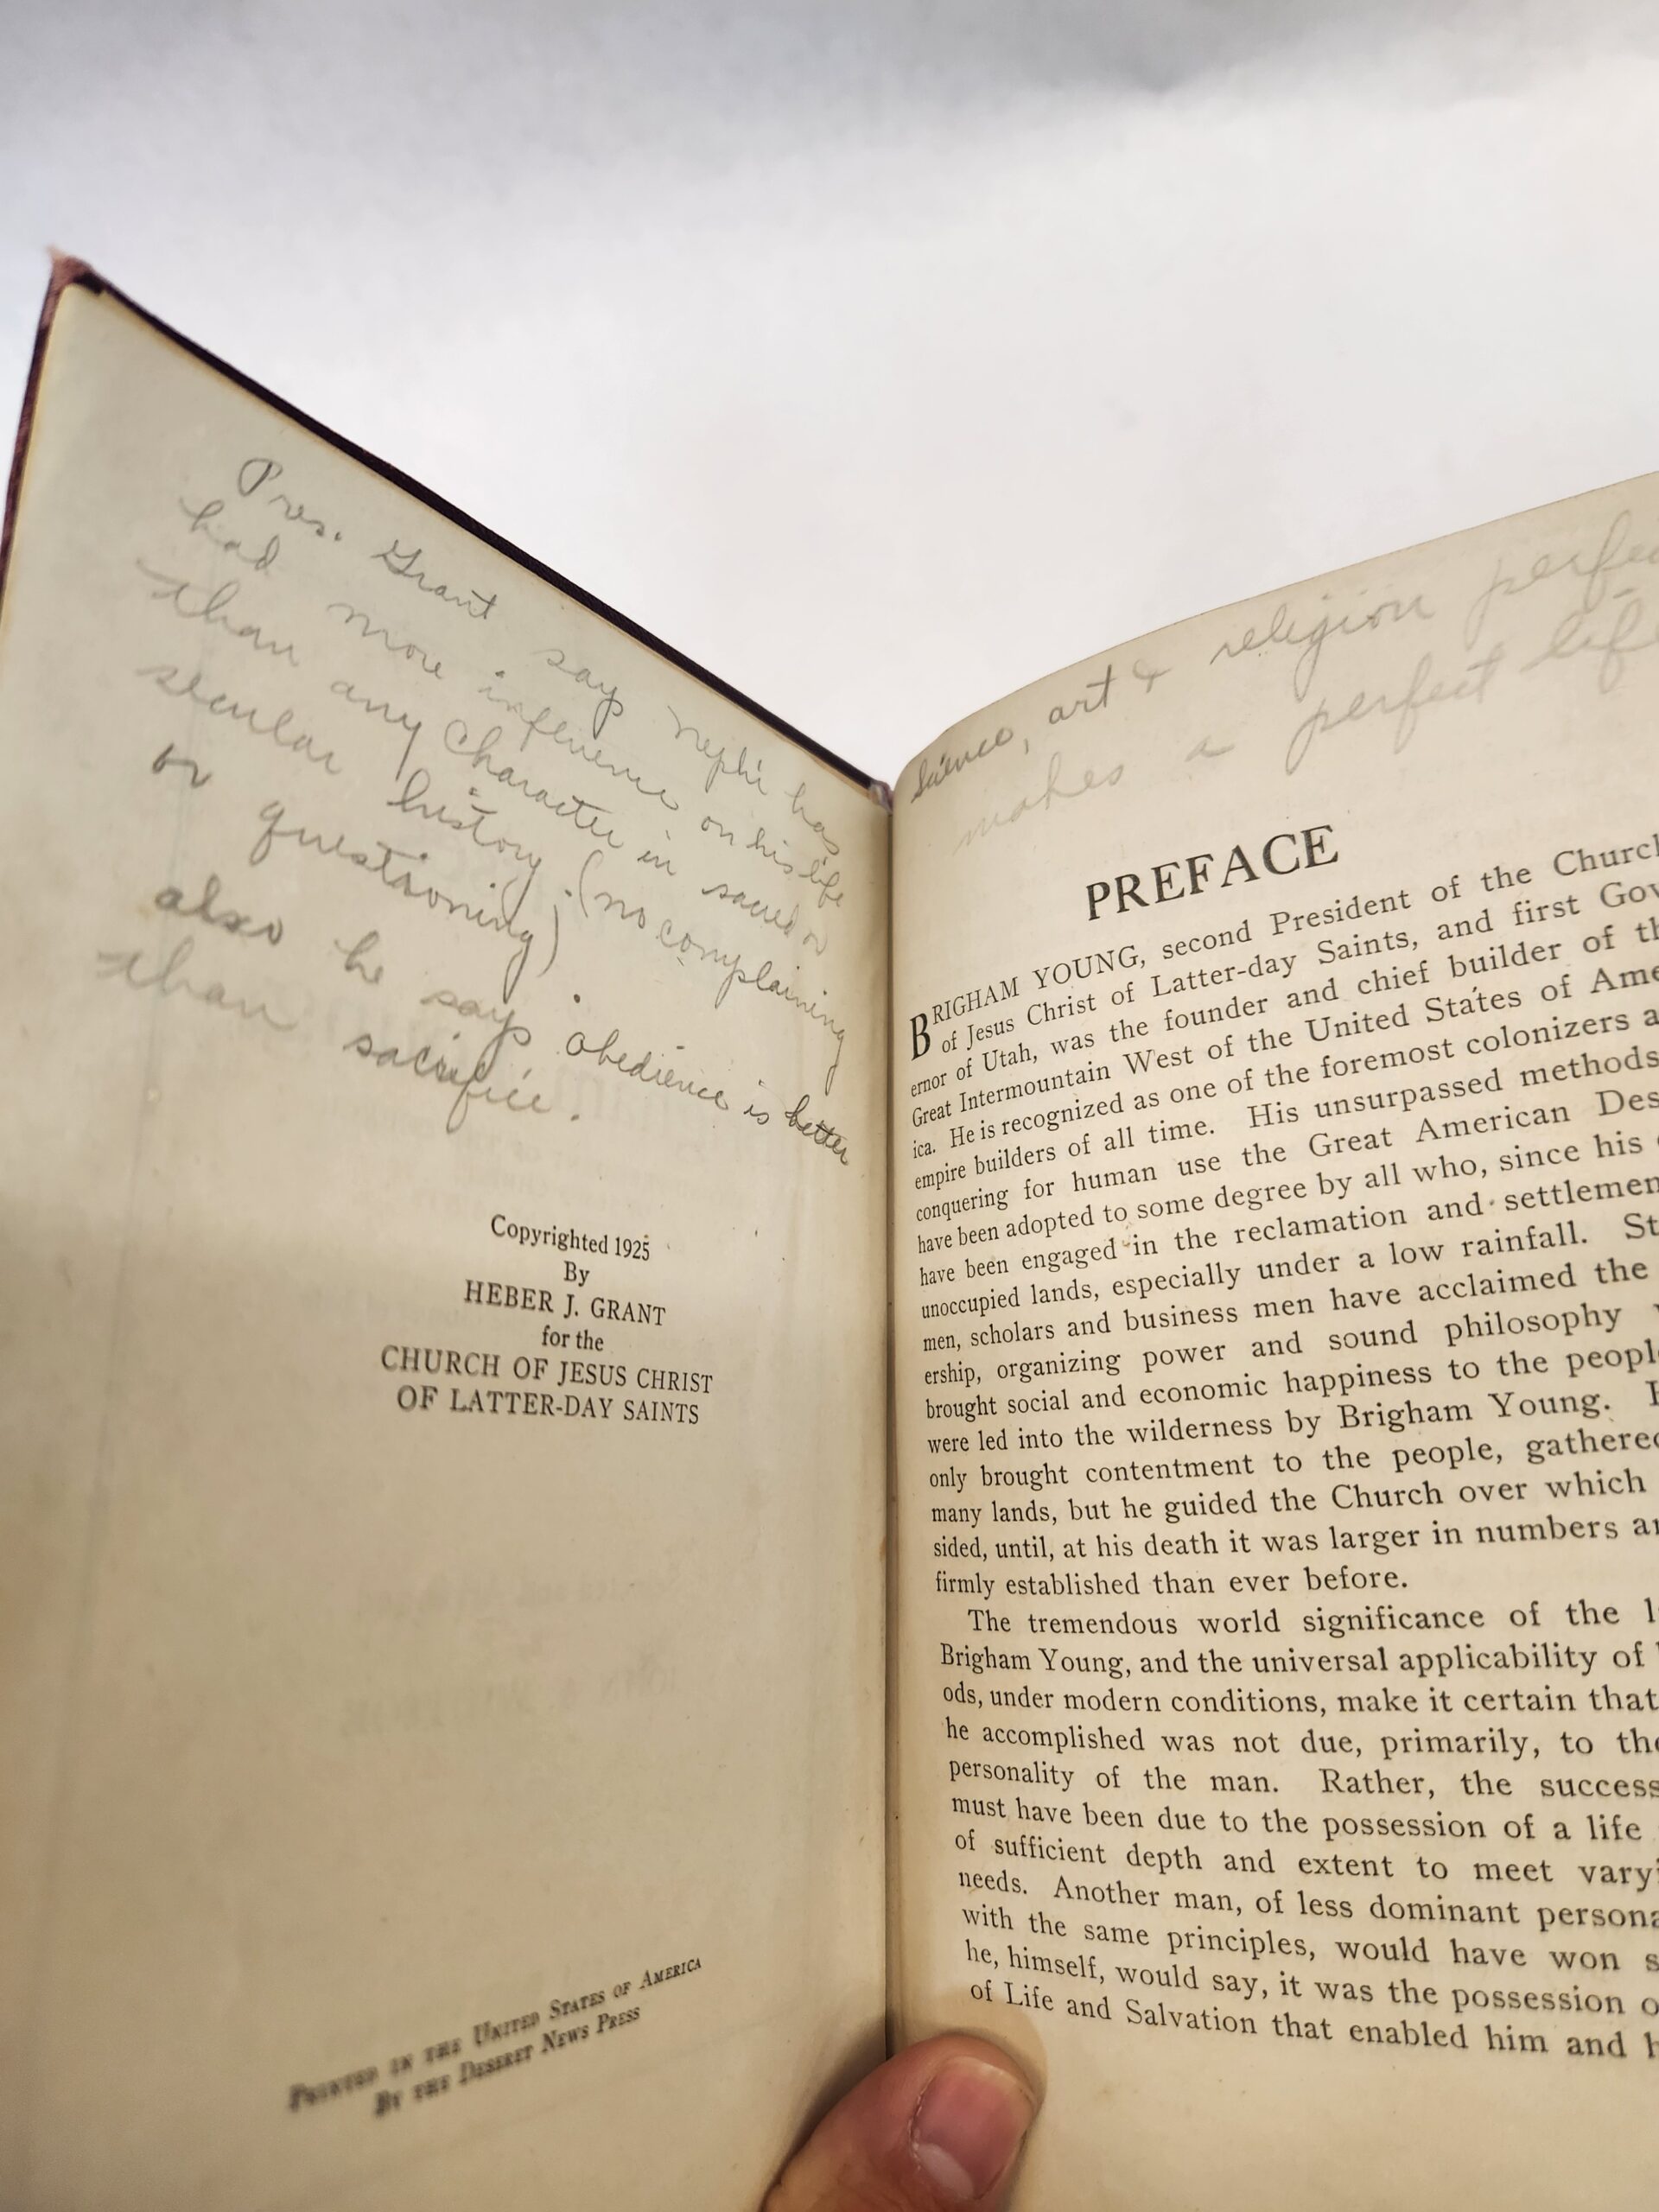 Pres. Grant says Nephi has
had more influence on his life
than any character in sacred or
secular history. (no complaining
or questioning)
also he says obedience is better
than sacrifice.
Copyrighted 1925
By
HEBER J. GRANT
for the
CHURCH OF JESUS CHRIST
OF LATTER-DAY SAINTS
PRINTED IN THE UNITED STATES OF AMERICA
BY THE DESERET NEWS PRESS
Science, art & religion perfec
makes a perfect life
PREFACE
BRIGHAM YOUNG, second President of the Church
of Jesus Christ of Latter-day Saints, and first Gov
ernor of Utah, was the founder and chief builder of th
Great Intermountain West of the United States of Ame
ica. He is recognized as one of the foremost colonizers a
empire builders of all time. His unsurpassed methods
conquering for human use the Great American Des
have been adopted to some degree by all who, since his
have been engaged in the reclamation and settlemen
unoccupied lands, especially under a low rainfall. St
men, scholars and business men have acclaimed the
ership, organizing power and sound philosophy
brought social and economic happiness to the people
were led into the wilderness by Brigham Young.
only brought contentment to the people, gathered
many lands, but he guided the Church over which
sided, until, at his death it was larger in numbers an
firmly established than ever before.
The tremendous world significance of the l
Brigham Young, and the universal applicability of
ods, under modern conditions, make it certain that
he accomplished was not due, primarily, to the
personality of the man. Rather, the success
must have been due to the possession of a life
of sufficient depth and extent to meet vary
needs. Another man, of less dominant persona
with the same principles, would have won s
he, himself, would say, it was the possession o
of Life and Salvation that enabled him and h